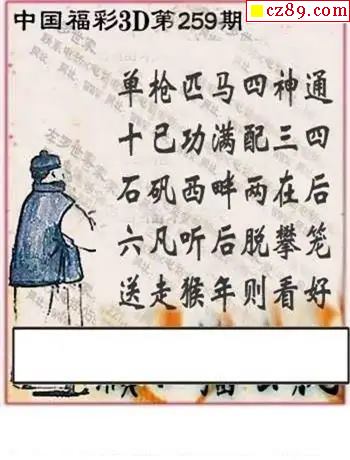 cz89.com
中国福彩3D第259期
单枪匹马四神通
十已功满配三四
石矶西畔两在后
六凡听后脱攀笼
送走猴年则看好